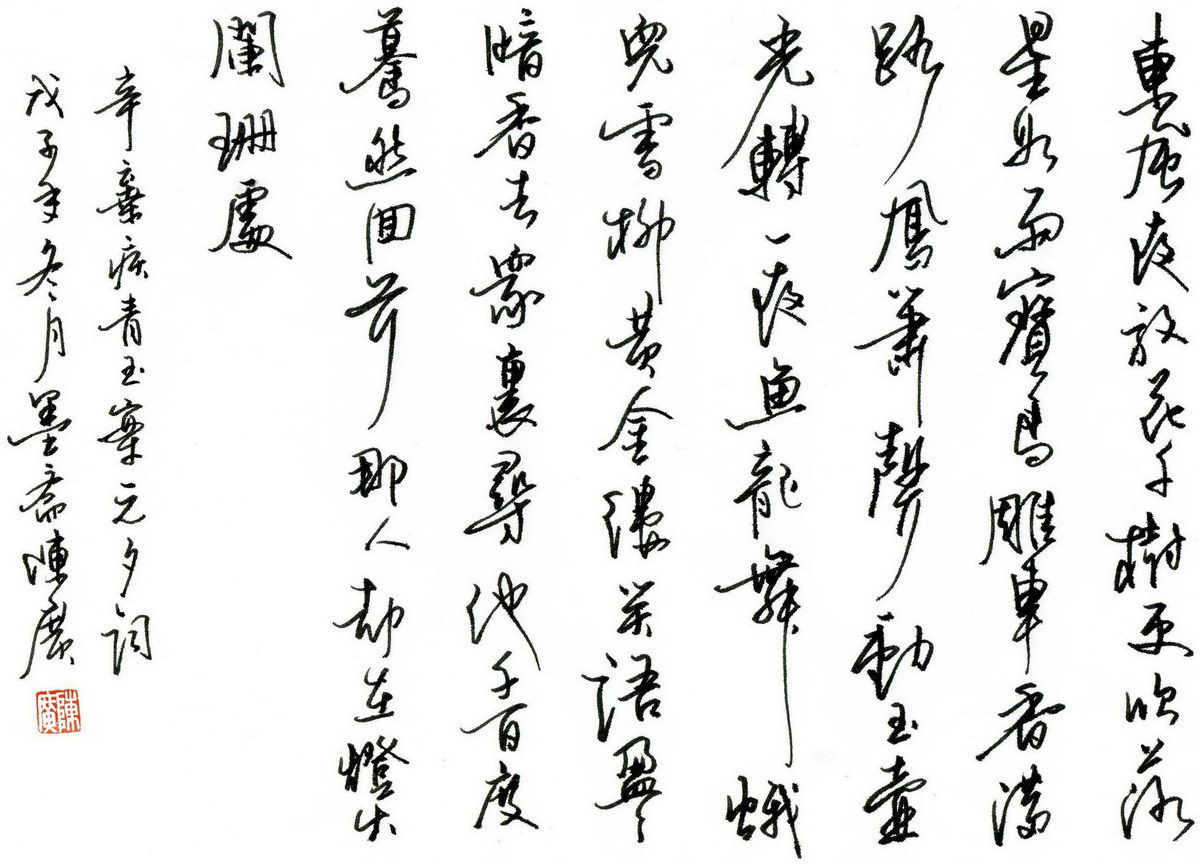 東風夜放花千樹更吹落
星如雨寶馬雕車香滿
路鳳簫聲動玉壺
光轉一夜魚龍舞蛾
兒雪柳黃金縷笑語盈〻
暗香去眾裏尋他千百度
驀然回首那人却在燈火
闌珊處
辛棄疾青玉案元夕詞
戊子年冬月墨齋陳廣
陳廣